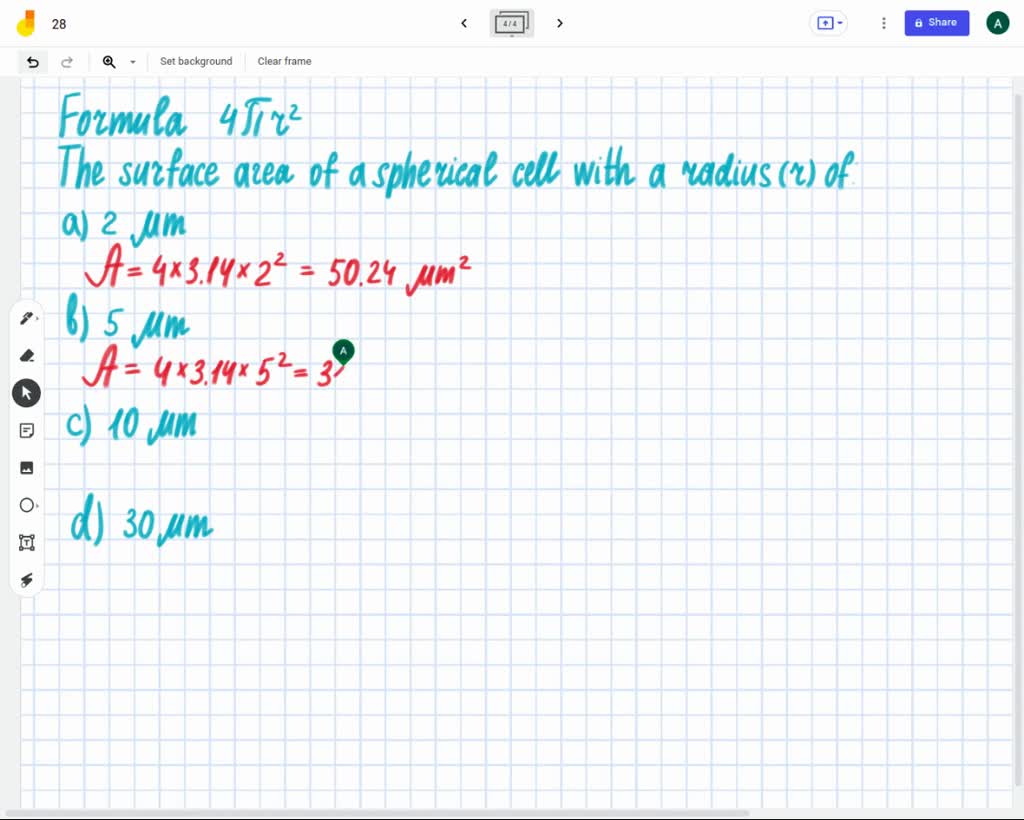 28
4 / 4
Share
A
Set background
Clear frame
Formula 4πr²
The surface area of a spherical cell with a radius (r) of:
a) 2 μm
A = 4 × 3.14 × 2² = 50.24 μm²
b) 5 μm
A = 4 × 3.14 × 5² = 3
A
c) 10 μm
d) 30 μm